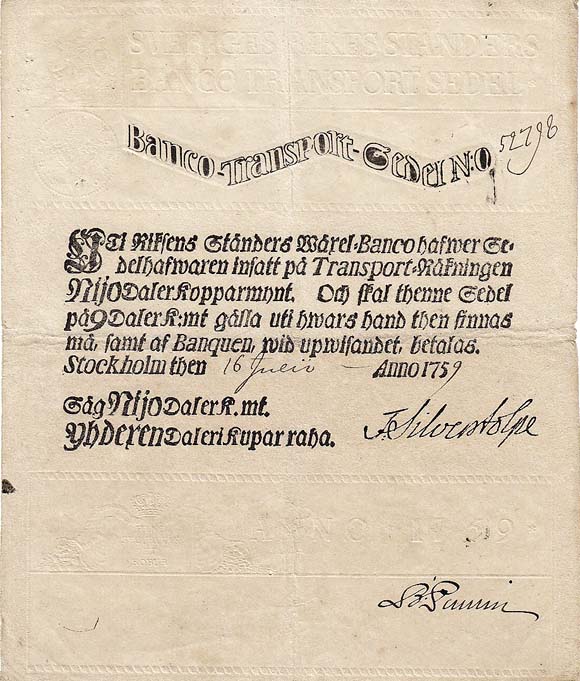 SVERIGES RIKES STÄNDERS
BANCO TRANSPORT SEDEL
Banco-Transport-Sedel N:o 52798
UTi Riksens Ständers Wäxel-Banco hafwer Se-
delhafwaren insatt på Transport-Räkningen
Nijo Daler Kopparmynt. Och skal thenne Sedel
på 9 Daler K:mt gälla uti hwars hand then finnas
må, samt af Banquen, wid upwisandet, betalas.
Stockholm then 16 Junii — Anno 1759
Säg Nijo Daler K. mt.
Yhdexen Daleri Kupar raha.
F. Silverstolpe
ANNO 1759